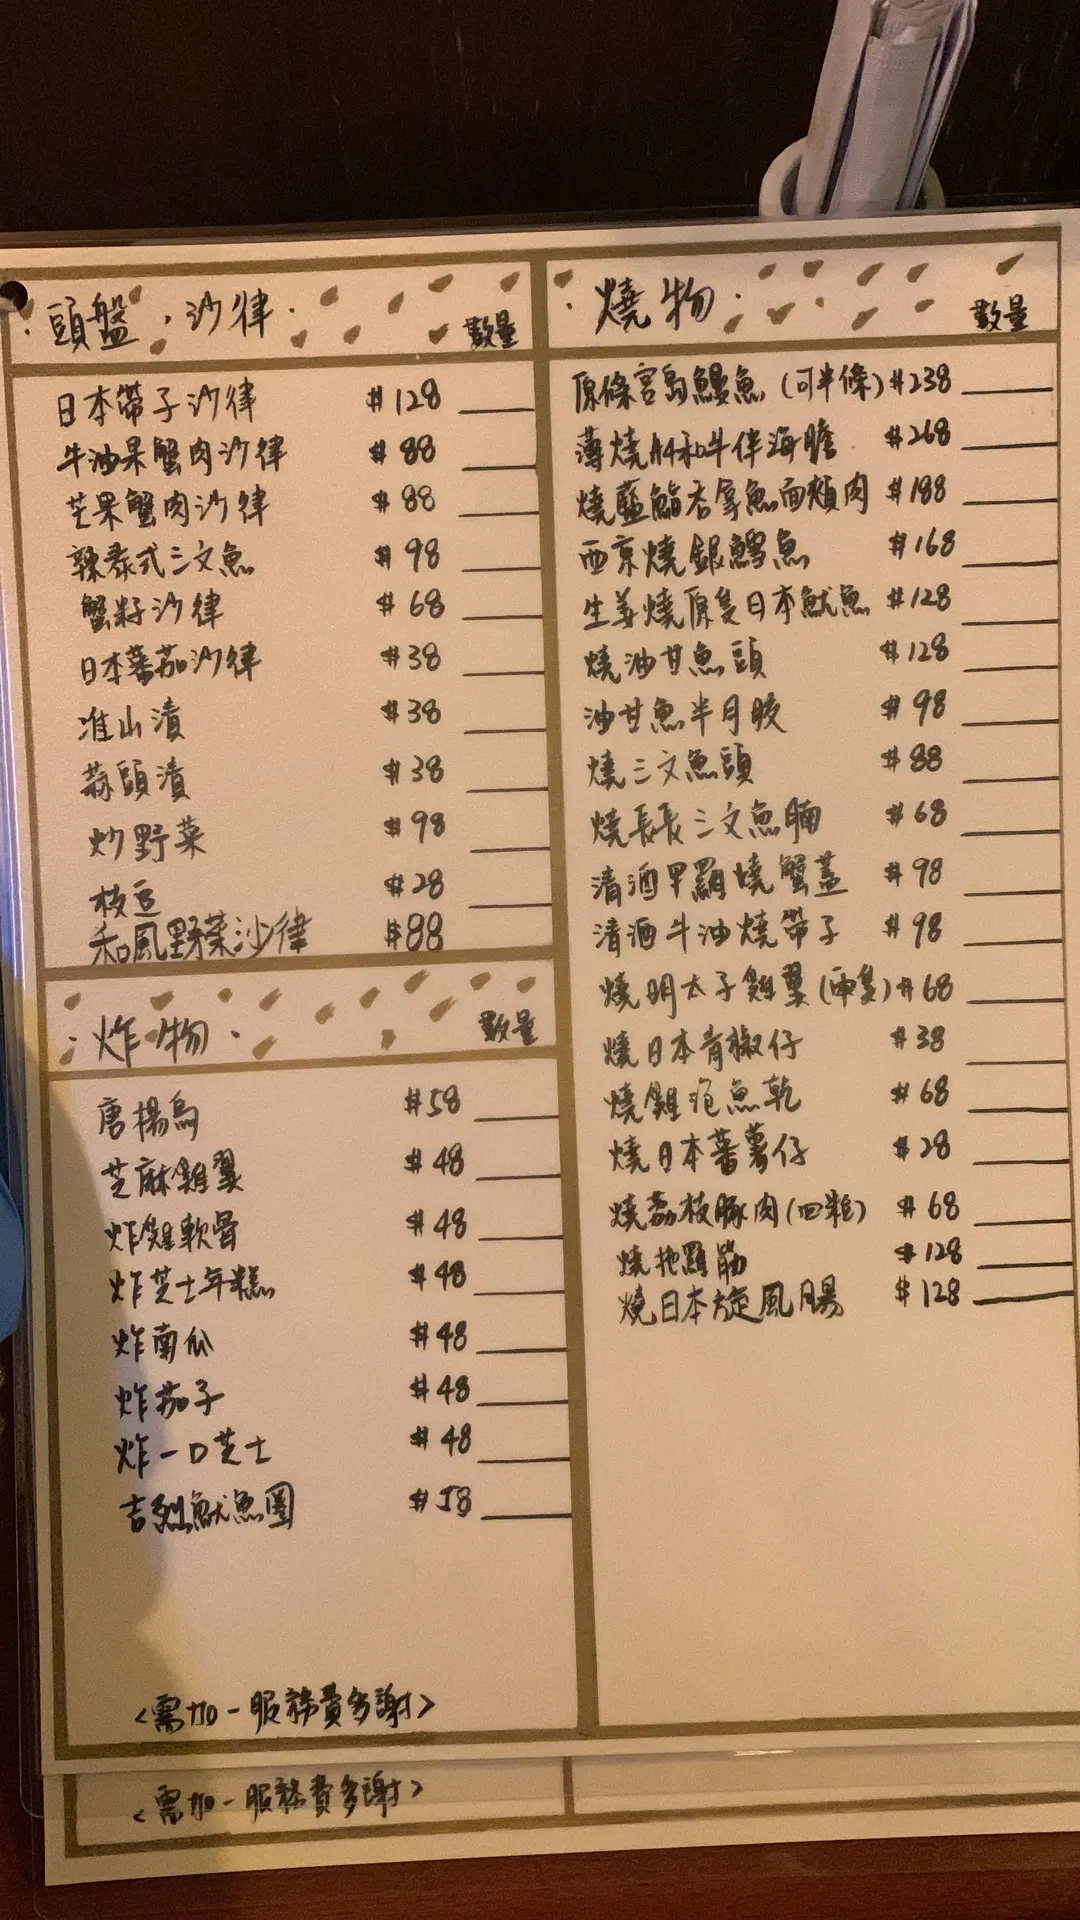 ·頭盤·沙律· 數量
日本帶子沙律 $128
牛油果蟹肉沙律 $88
芒果蟹肉沙律 $88
辣泰式三文魚 $98
蟹籽沙律 $68
日本蕃茄沙律 $38
准山漬 $38
蒜頭漬 $38
炒野菜 $98
枝豆 $28
和風野菜沙律 $88
·炸物· 數量
唐揚烏 $58
芝麻雞翼 $48
炸雞軟骨 $48
炸芝士年糕 $48
炸南瓜 $48
炸茄子 $48
炸一口芝士 $48
吉列魷魚圈 $58
<需加一服務費多謝>
·燒物· 數量
原條宮島鰻魚(可半條) $238
薄燒A4和牛伴海膽 $268
燒藍鰭吞拿魚面頰肉 $188
西京燒銀鱈魚 $168
生姜燒原隻日本魷魚 $128
燒油甘魚頭 $128
油甘魚半月胶 $98
燒三文魚頭 $88
燒長長三文魚腩 $68
清酒甲羅燒蟹蓋 $98
清酒牛油燒帶子 $98
燒明太子雞翼(兩隻) $68
燒日本青椒仔 $38
燒雞泡魚乾 $68
燒日本蕃薯仔 $28
燒荔枝豚肉(四粒) $68
燒拖羅筋 $128
燒日本旋風腸 $128
<需加一服務費多謝>